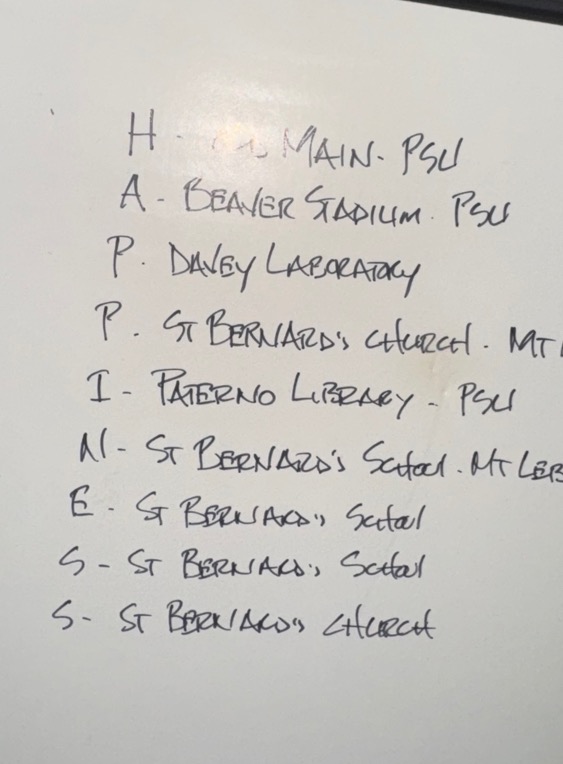 H - MAIN - PSU
A - BEAVER STADIUM - PSU
P. DAVEY LABORATORY
P. ST BERNARD'S CHURCH - MT
I - PATERNO LIBRARY - PSU
N - ST BERNARD'S School - MT LEB
E - ST BERNARD'S School
S - ST BERNARD'S School
S - ST BERNARD'S CHURCH